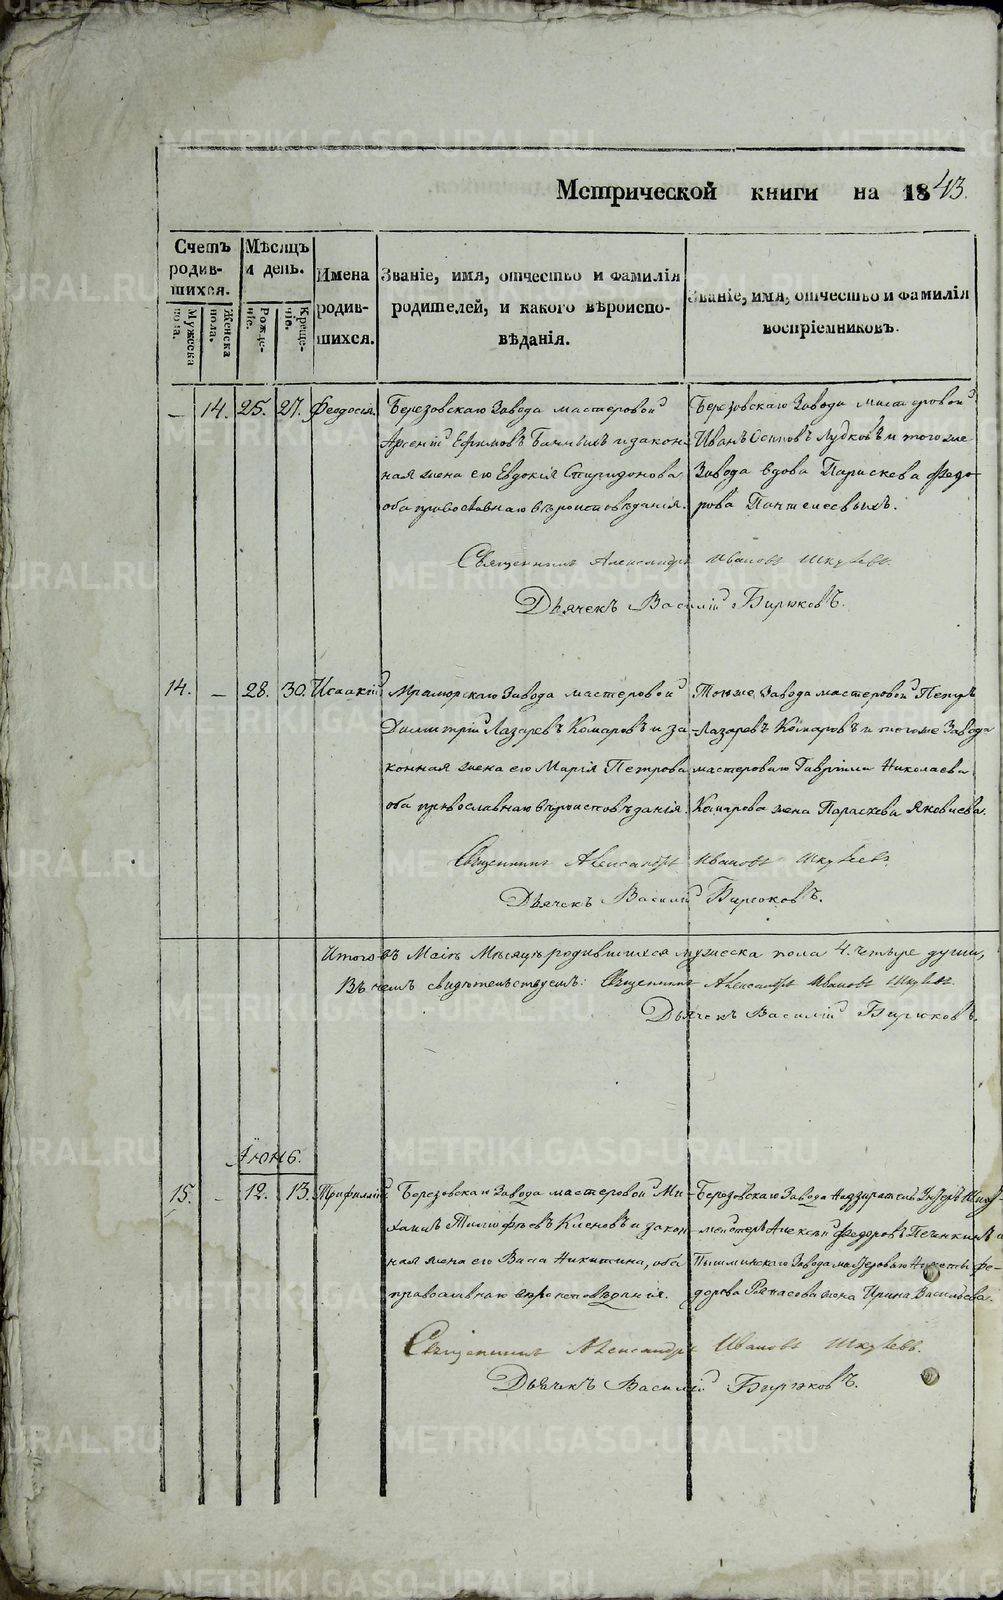 Метрической книги на 1843.
Счетъ родив-шихся.
Мѣсяцъ и день.
Имена родив-шихся.
Званіе, имя, отчество и фамилія родителей, и какого вѣроиспо-вѣданія.
Званіе, имя, отчество и фамилія воспріемниковъ.
Мужеска пола.
Женска пола.
Рожде-ніе.
Креще-ніе.
— 14. 25. 27. Феодосія. Березовскаго Завода мастеровой Березовскаго Завода мастеровой
Ефимовъ и закон- Иванъ Осиповъ и того же
ная жена его Евдокія Спиридонова Завода вдова Параскева Федо-
оба православнаго вѣроисповѣданія. рова
Священникъ Александръ Ивановъ
Дьячекъ Василій Бирюковъ.
14. — 28. 30. Исаакій Мраморскаго Завода мастеровой Тогоже Завода мастеровой Петръ
Димитрій Лазаревъ Комаровъ и за- Лазаревъ Комаровъ и тогоже Завода
конная жена его Марія Петрова мастероваго Гавріила Николаева
оба православнаго вѣроисповѣданія. Комарова жена Параскева Яковлева.
Священникъ Александръ Ивановъ
Дьячекъ Василій Бирюковъ.
Итого въ Маіѣ Мѣсяцѣ родившихся мужеска пола 4. четыре души,
Въ чемъ свидѣтельствуемъ: Священникъ Александръ Ивановъ
Дьячекъ Василій Бирюковъ.
Іюнь.
15. — 12. 13. Трифиллій. Березовскаго Завода мастеровой Ми- Березовскаго Завода Надзиратель
хаилъ Тимофѣевъ Кленовъ и закон- Алексѣй Федоровъ Печенкинъ и
ная жена его Васа Никитина, оба Пышминскаго Завода мастероваго Никиты Фе-
православнаго вѣроисповѣданія. дорова жена Ирина Васильева.
Священникъ Александръ Ивановъ
Дьячекъ Василій Бирюковъ.
METRIKI.GASO-URAL.RU